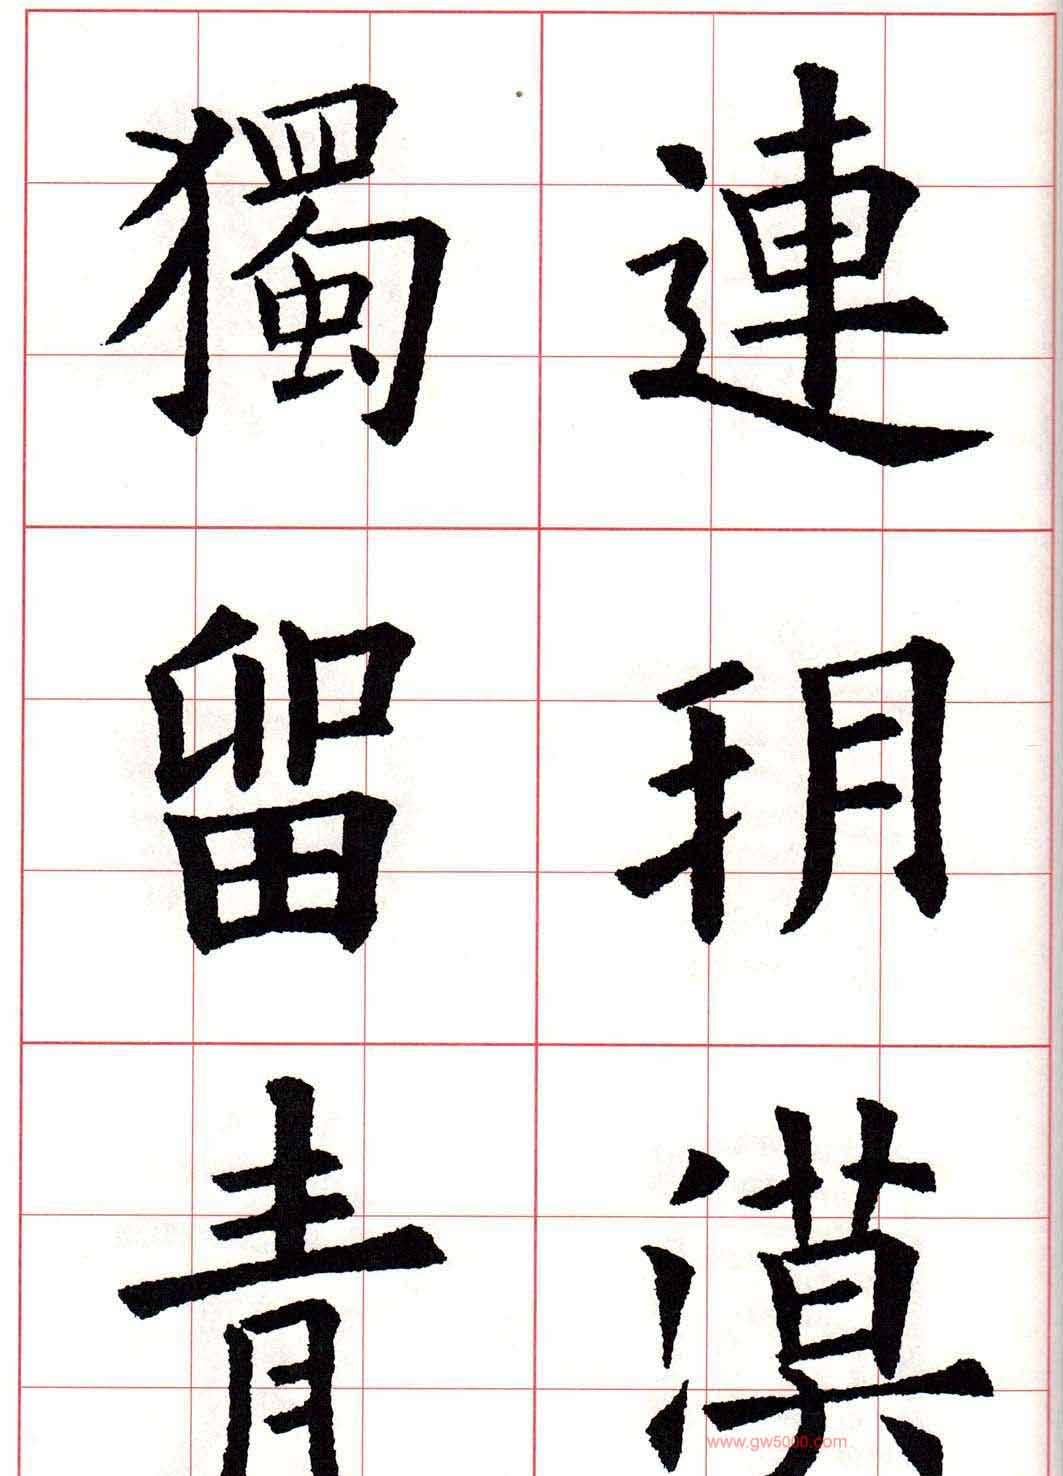 連朔漠
獨留青
www.gw5000.com